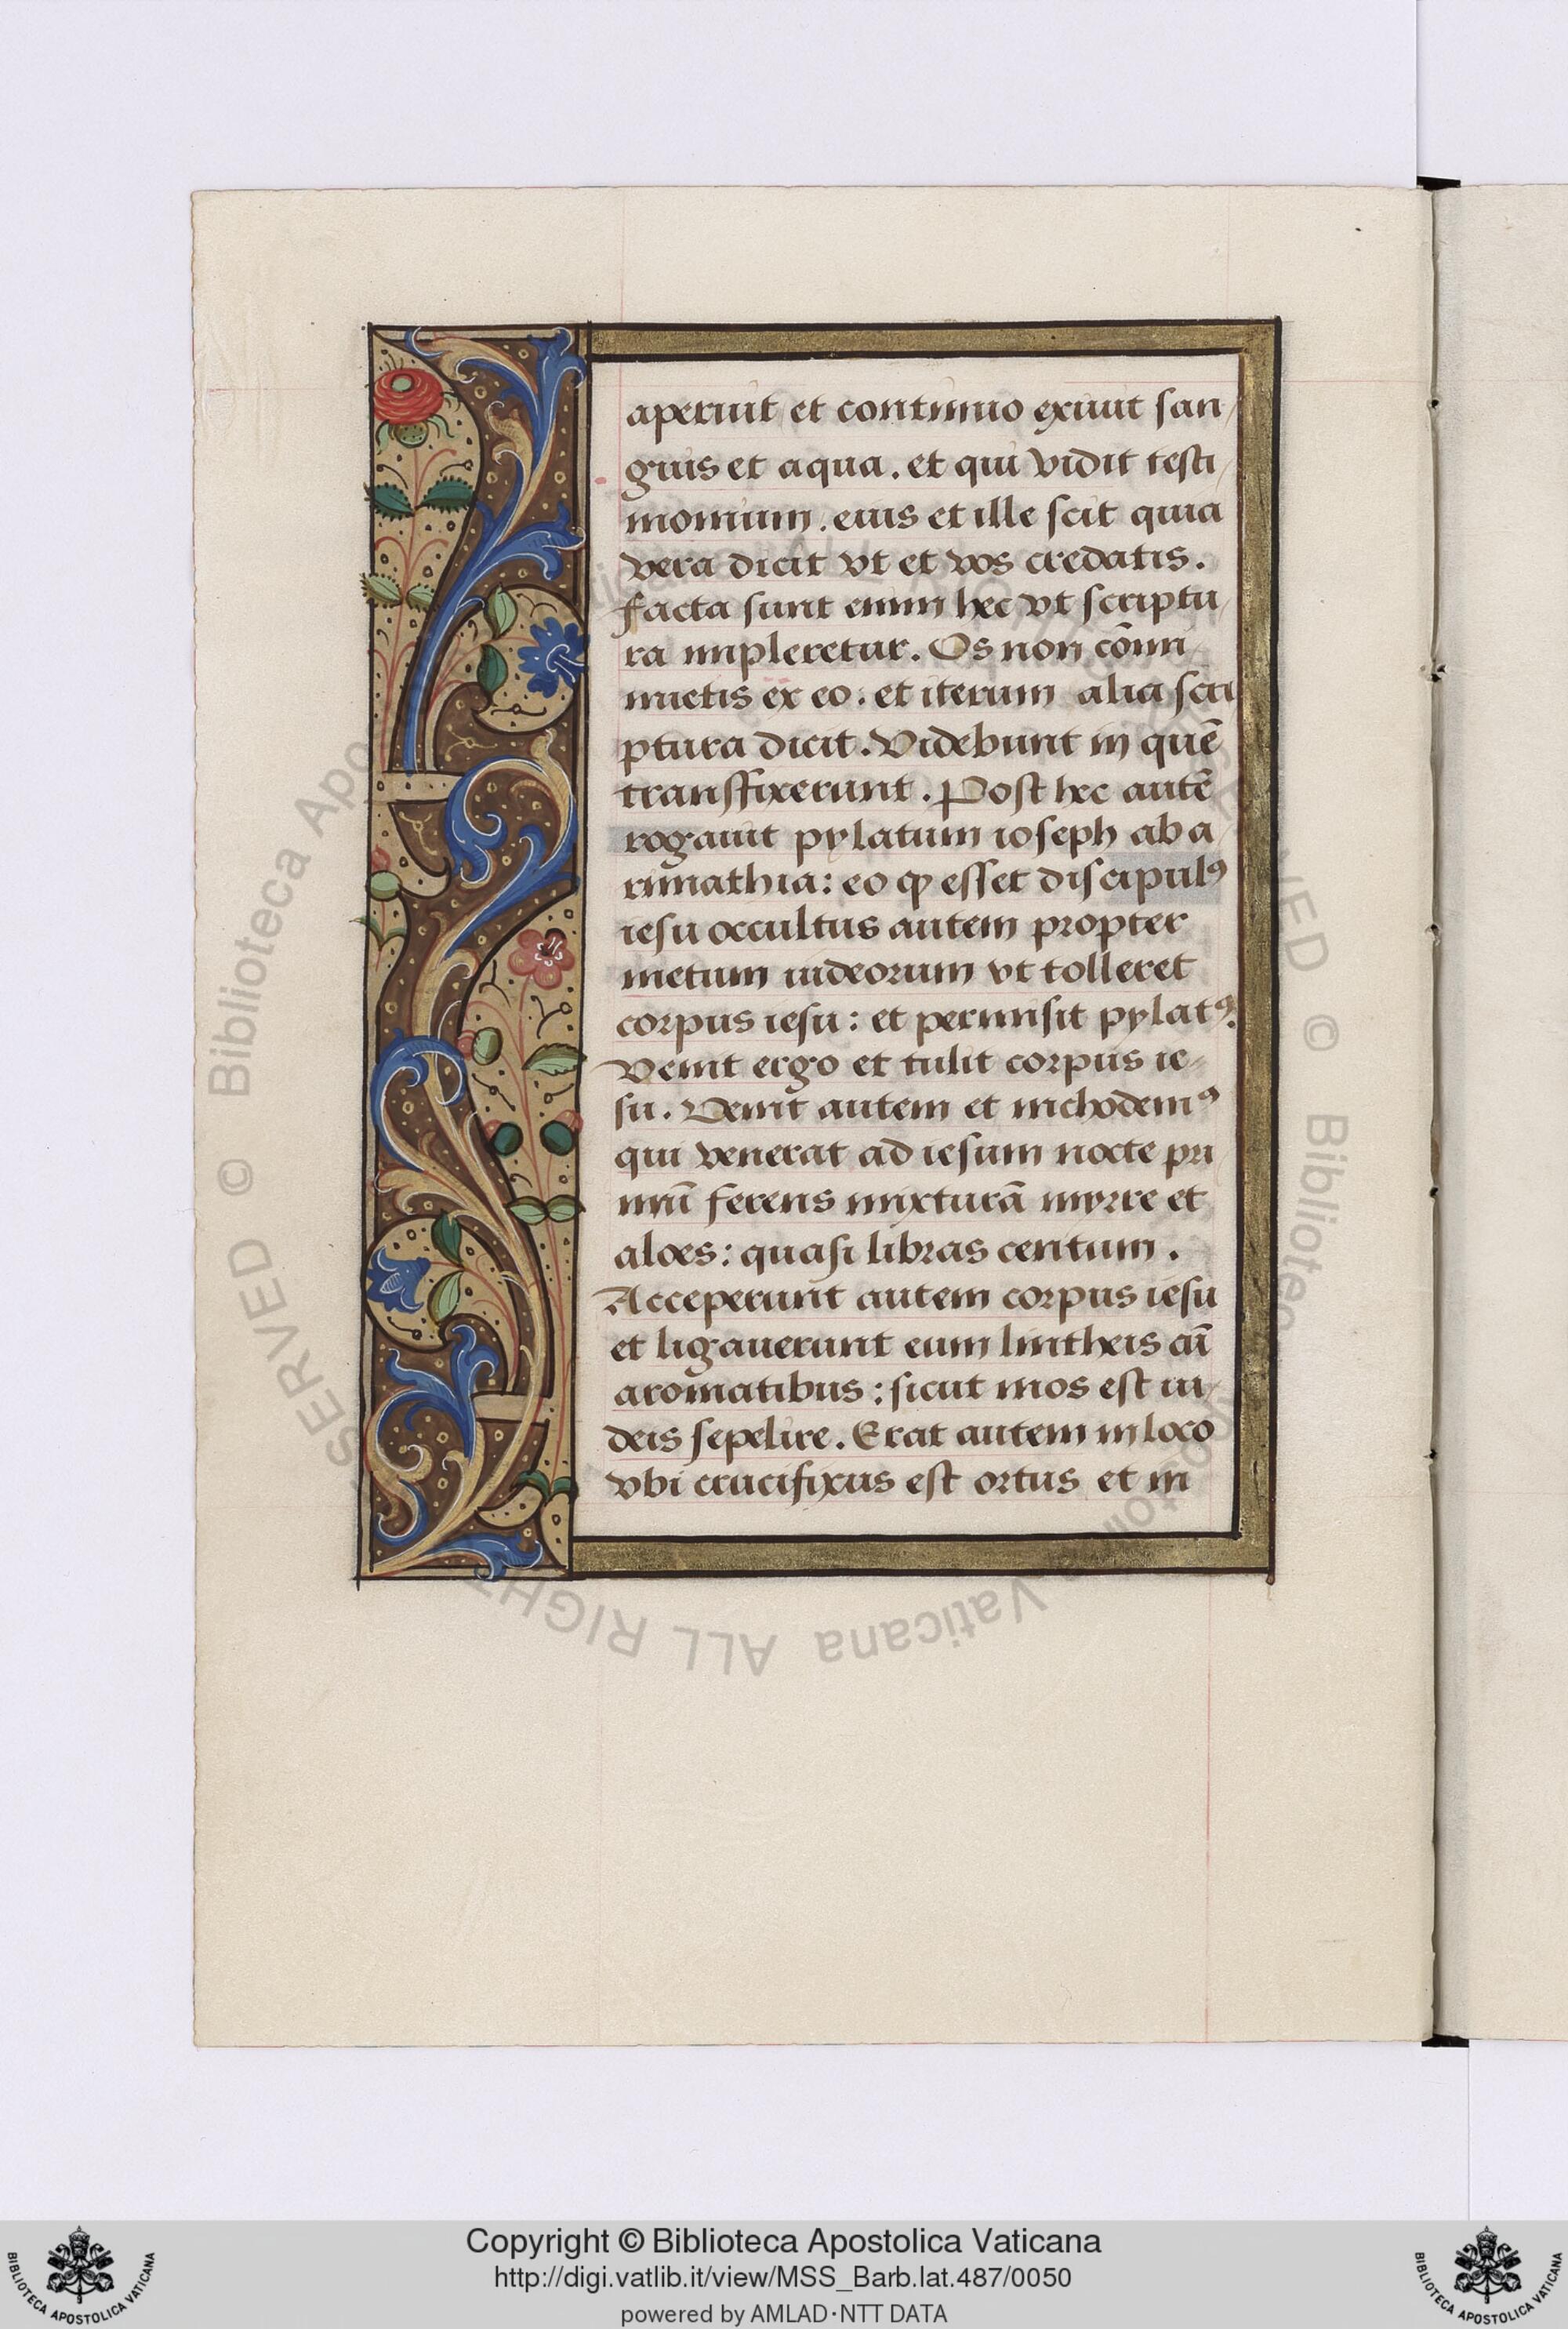 aperuit et continuo exiuit san-
guis et aqua. et qui vidit testi-
monium. eius et ille scit quia
vera dicit vt et vos credatis.
facta sunt enim hec vt scriptu-
ra impleretur. Os non cōmi-
nuetis ex eo: et iterum alia scri
ptura dicit. Videbunt in quē
transfixerunt. Post hec autē
rogauit pylatum ioseph ab a-
rimathia: eo ꝙ esset discipulꝰ
iesu occultus autem propter
metum iudeorum vt tolleret
corpus iesu: et permisit pylatꝰ.
Venit ergo et tulit corpus ie-
su. Venit autem et nichodemꝰ
qui venerat ad iesum nocte pri
mū ferens mixturā myrre et
aloes: quasi libras centum.
Acceperunt autem corpus iesu
et ligauerunt eum lintheis cū
aromatibus: sicut mos est iu-
deis sepelire. Erat autem in loco
vbi crucifixus est ortus et in
© Biblioteca Apostolica Vaticana ALL RIGHTS RESERVED
Copyright © Biblioteca Apostolica Vaticana
http://digi.vatlib.it/view/MSS_Barb.lat.487/0050
powered by AMLAD·NTT DATA
BIBLIOTECA APOSTOLICA VATICANA
BIBLIOTECA APOSTOLICA VATICANA